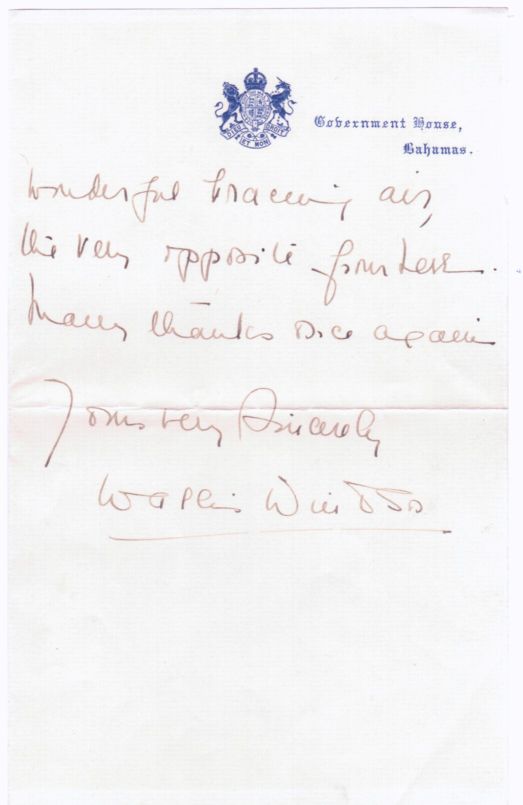 DIEU ET MON DROIT
Government House,
Bahamas.
wonderful bracing air,
the very opposite from here.
Many thanks once again
Yours very sincerely
Wallis Windsor